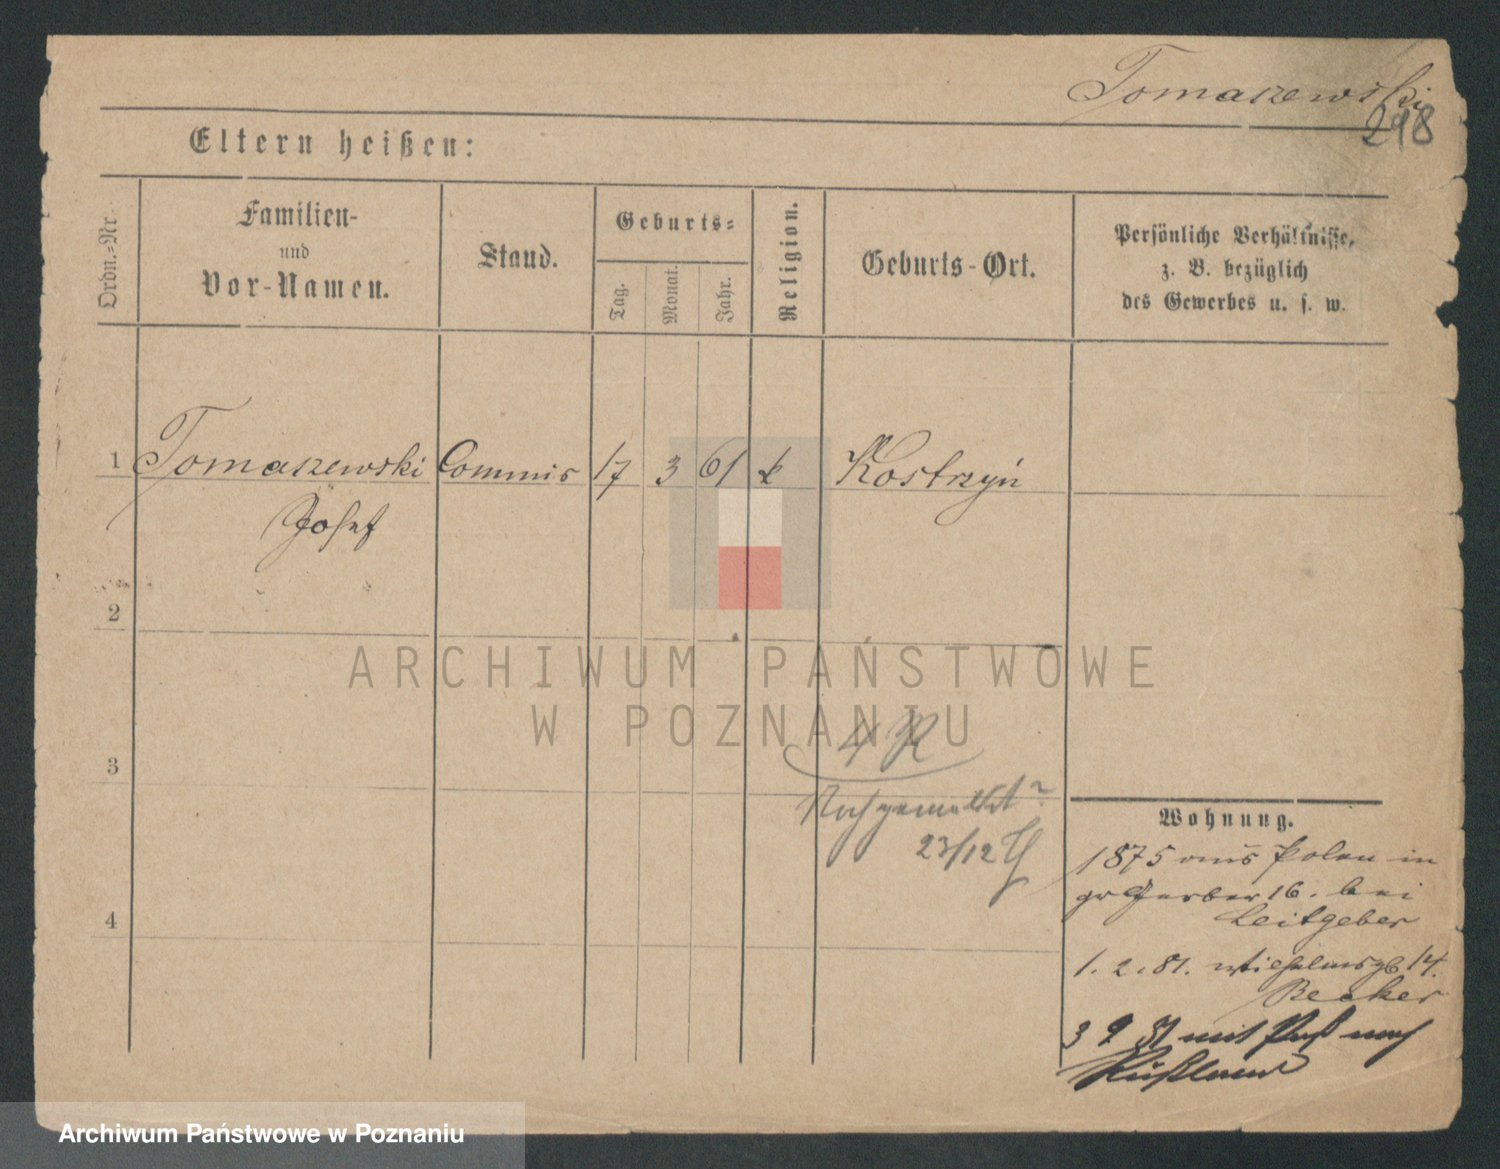 Tomaszewski
298
Eltern heißen:
Ordn.-Nr.
Familien-
und
Vor-Namen.
Stand.
Geburts-
Tag.
Monat.
Jahr.
Religion.
Geburts-Ort.
Persönliche Verhältnisse,
z. B. bezüglich
des Gewerbes u. s. w.
1 Tomaszewski Commis 17 3 61 k Kostrzyń
Josef
2
3
4
ARCHIWUM PAŃSTWOWE
W POZNANIU
23/12
Wohnung.
1875 aus Polen in
gr Gerber 16. bei
Leitgeber
1. 2. 81. Wilhelmspl 14.
Becker
3 9 81 mit Paß nach
Rußland
Archiwum Państwowe w Poznaniu